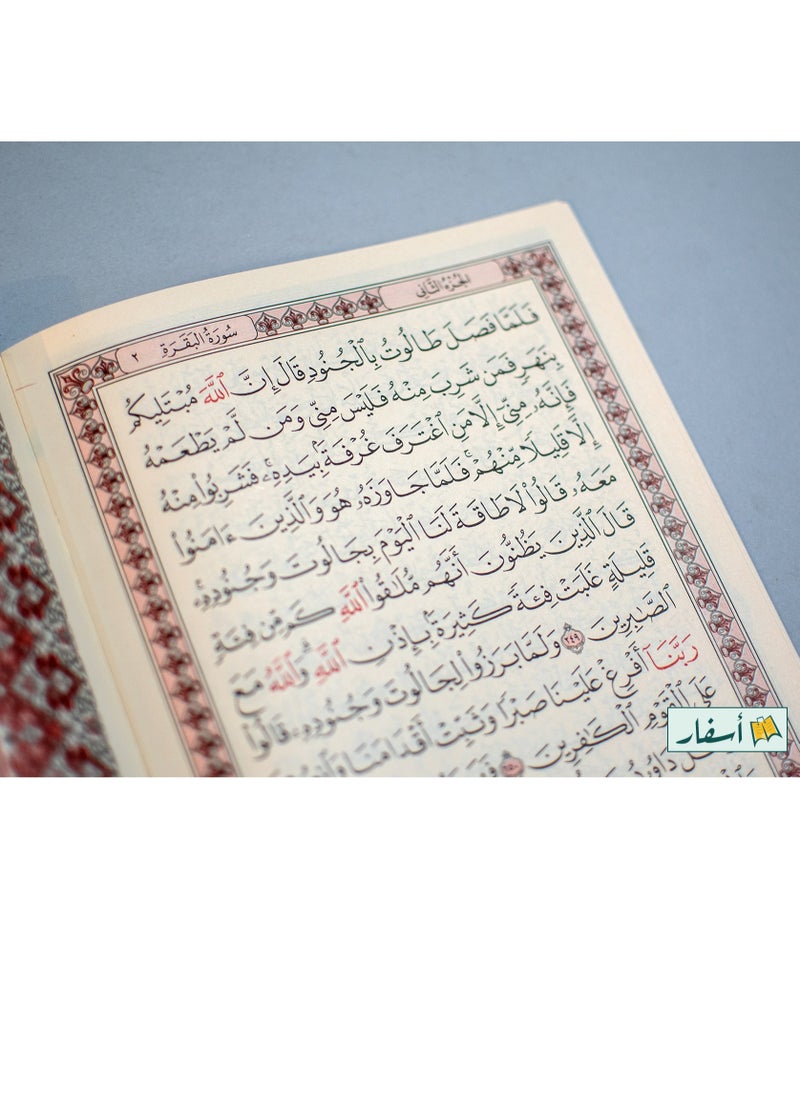 الجزء الثاني
سورة البقرة ٢
فَلَمَّا فَصَلَ طَالُوتُ بِٱلْجُنُودِ قَالَ إِنَّ ٱللَّهَ مُبْتَلِيكُم
بِنَهَرٍ فَمَن شَرِبَ مِنْهُ فَلَيْسَ مِنِّي وَمَن لَّمْ يَطْعَمْهُ
فَإِنَّهُۥ مِنِّيٓ إِلَّا مَنِ ٱغْتَرَفَ غُرْفَةَۢ بِيَدِهِۦۚ فَشَرِبُوا۟ مِنْهُ
إِلَّا قَلِيلًا مِّنْهُمْۚ فَلَمَّا جَاوَزَهُۥ هُوَ وَٱلَّذِينَ ءَامَنُوا۟
مَعَهُۥ قَالُوا۟ لَا طَاقَةَ لَنَا ٱلْيَوْمَ بِجَالُوتَ وَجُنُودِهِۦۚ
قَالَ ٱلَّذِينَ يَظُنُّونَ أَنَّهُم مُّلَٰقُوا۟ ٱللَّهِ كَم مِّن فِئَةٍ
قَلِيلَةٍ غَلَبَتْ فِئَةً كَثِيرَةَۢ بِإِذْنِ ٱللَّهِۗ وَٱللَّهُ مَعَ
ٱلصَّٰبِرِينَ ٢٤٩ وَلَمَّا بَرَزُوا۟ لِجَالُوتَ وَجُنُودِهِۦ قَالُوا۟
رَبَّنَآ أَفْرِغْ عَلَيْنَا صَبْرًا وَثَبِّتْ أَقْدَامَنَا
عَلَى ٱلْقَوْمِ ٱلْكَٰفِرِينَ ٢٥٠
دَاوُۥدُ
أسفار